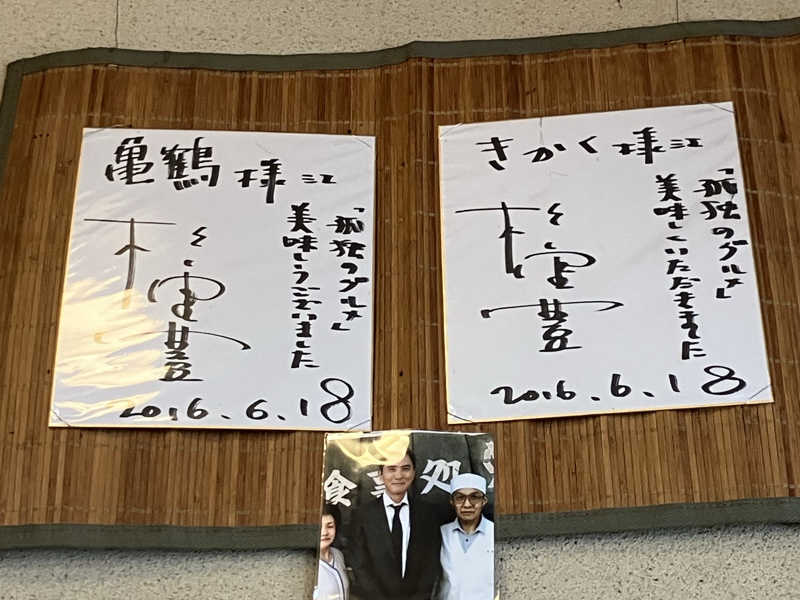 亀鶴様江
「孤独のグルメ」
美味しうございました
松重豊
2016.6.18
きかく様江
「孤独のグルメ」
美味しくいただきました
松重豊
2016.6.18
食事処